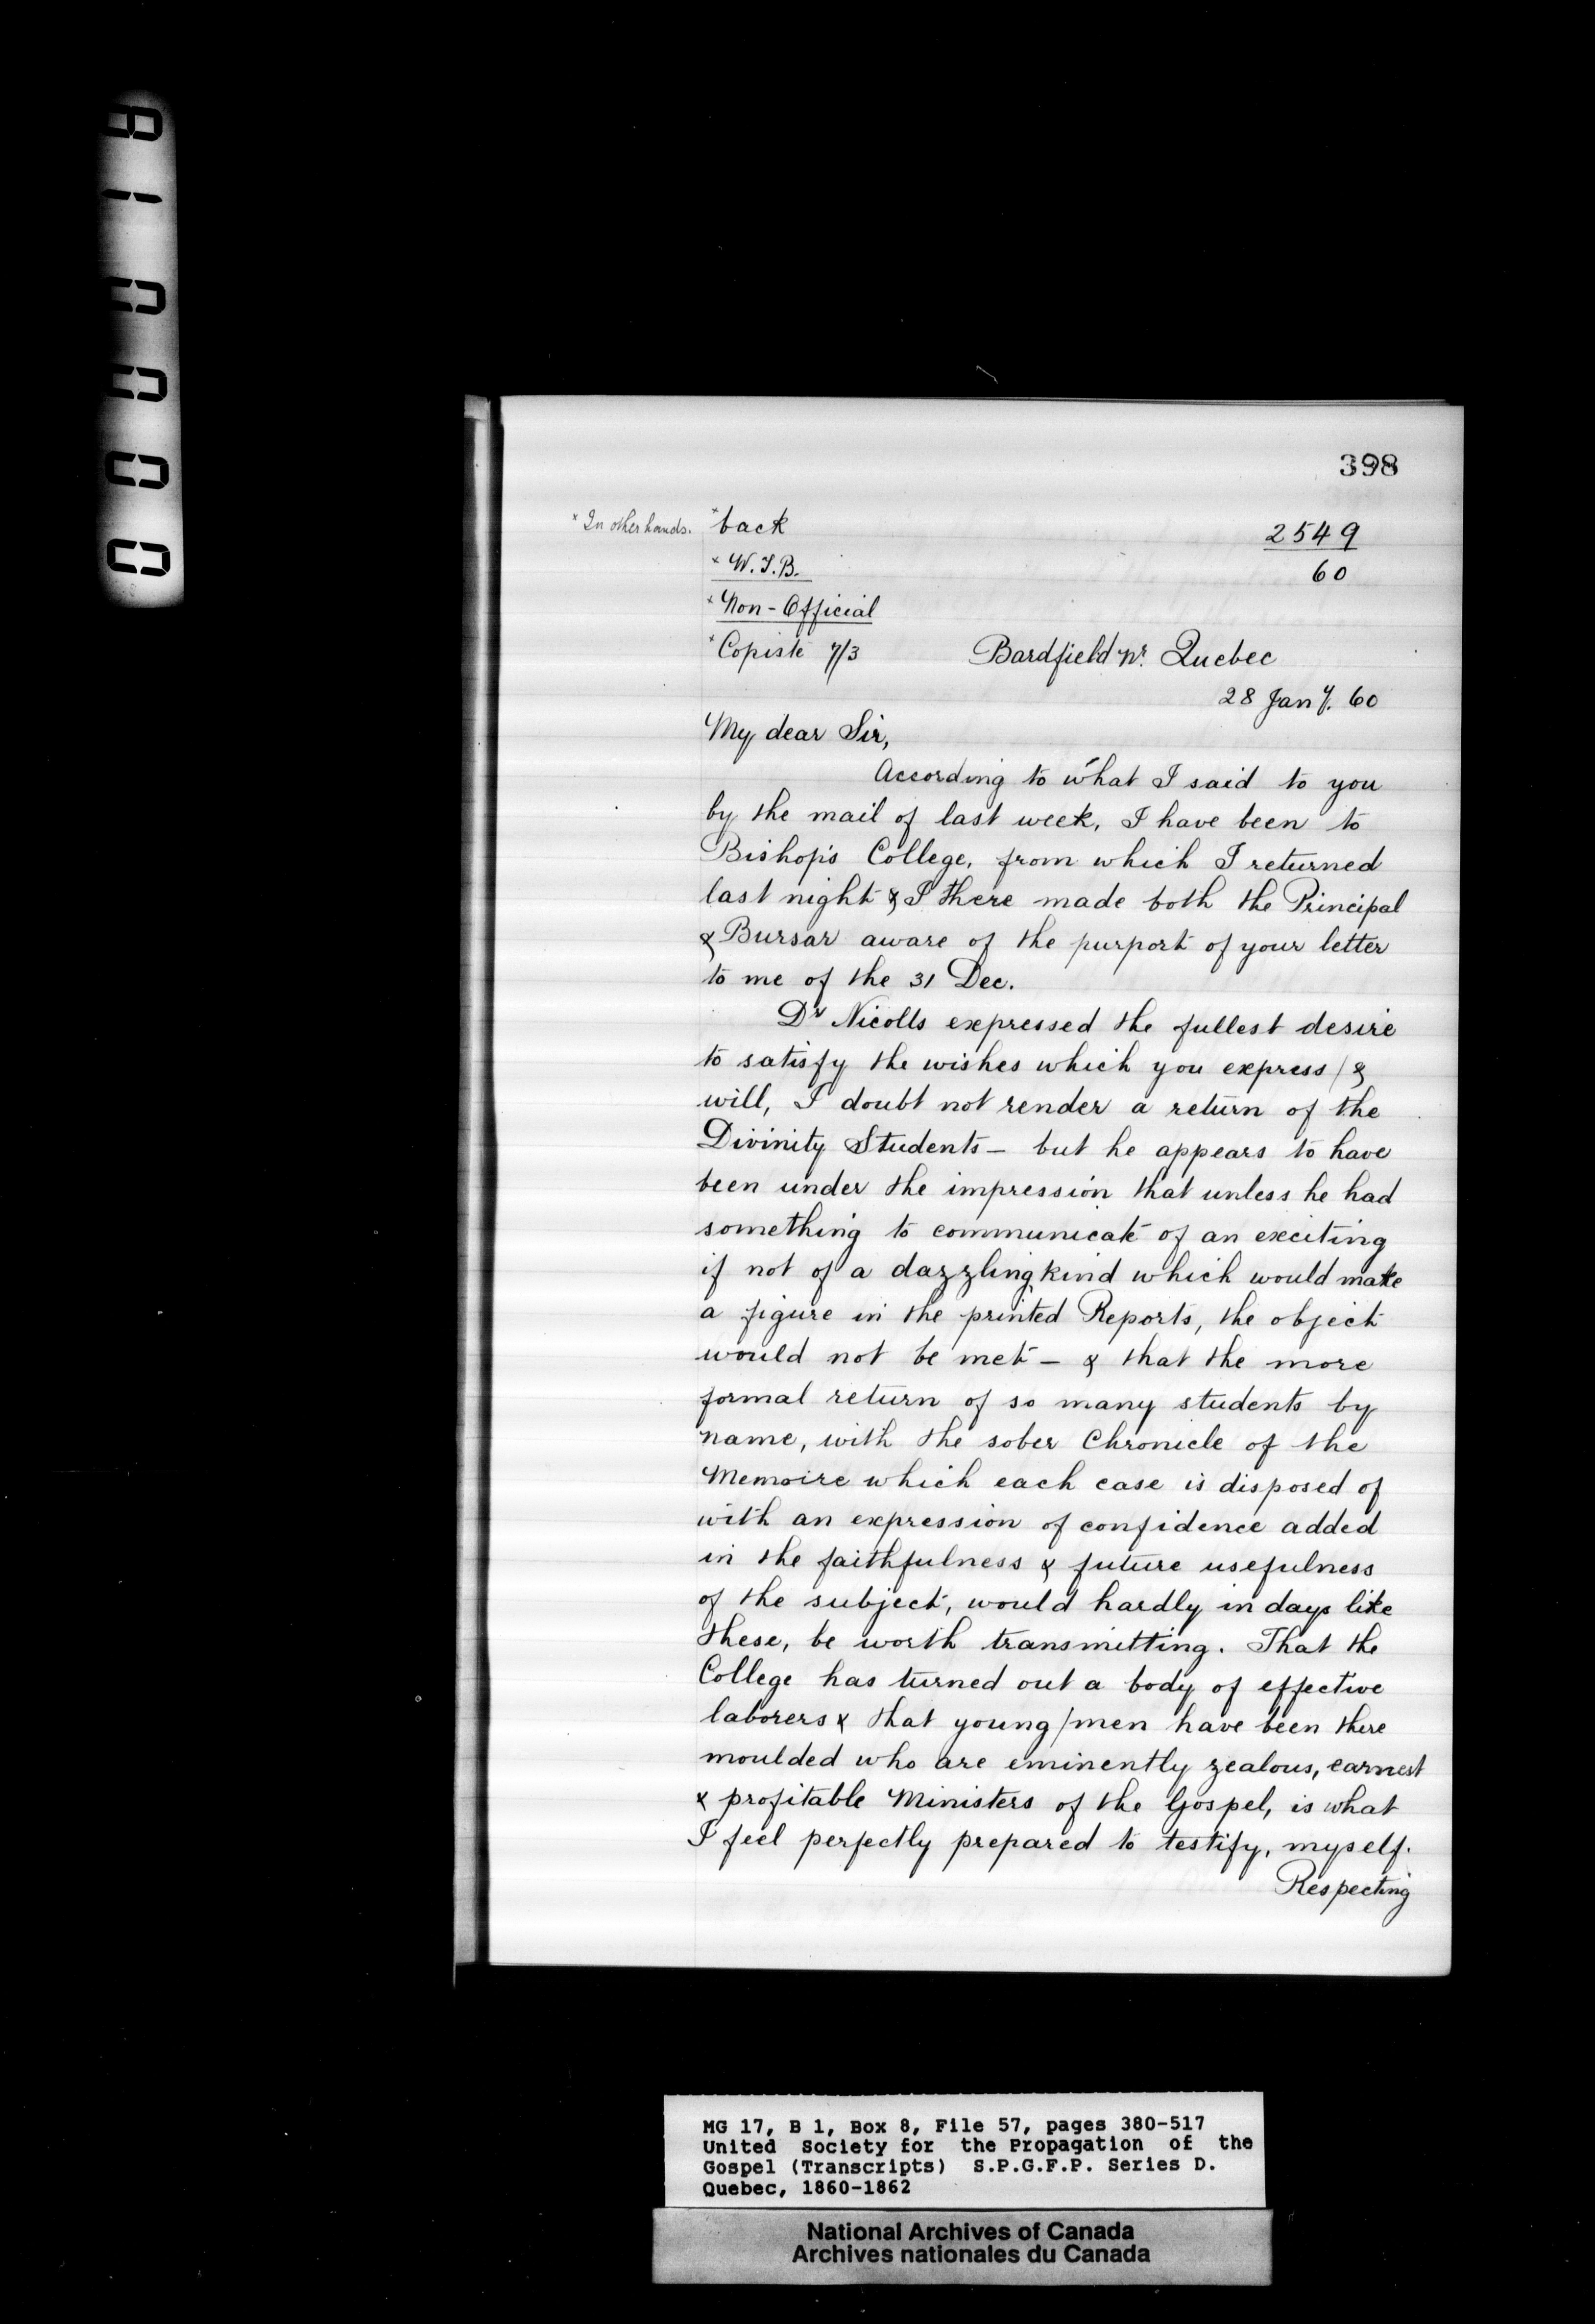 398
× In other hands. × back
2549
60
× W.T.B.
× Non-Official
× Copiste 7/3
Bardfield nr. Quebec
28 Jany. 60
My dear Sir,
According to what I said to you
by the mail of last week, I have been to
Bishop's College, from which I returned
last night & I there made both the Principal
& Bursar aware of the purport of your letter
to me of the 31 Dec.
Dr Nicolls expressed the fullest desire
to satisfy the wishes which you express / &
will, I doubt not render a return of the
Divinity Students — but he appears to have
been under the impression that unless he had
something to communicate of an exciting
if not of a dazzling kind which would make
a figure in the printed Reports, the object
would not be met — & that the more
formal return of so many students by
name, with the sober Chronicle of the
Memoire which each case is disposed of
with an expression of confidence added
in the faithfulness & future usefulness
of the subject, would hardly in days like
these, be worth transmitting. That the
College has turned out a body of effective
laborers & that young/men have been there
moulded who are eminently zealous, earnest
& profitable Ministers of the Gospel, is what
I feel perfectly prepared to testify, myself.
Respecting
MG 17, B 1, Box 8, File 57, pages 380-517
United Society for the Propagation of the
Gospel (Transcripts) S.P.G.F.P. Series D.
Quebec, 1860-1862
National Archives of Canada
Archives nationales du Canada